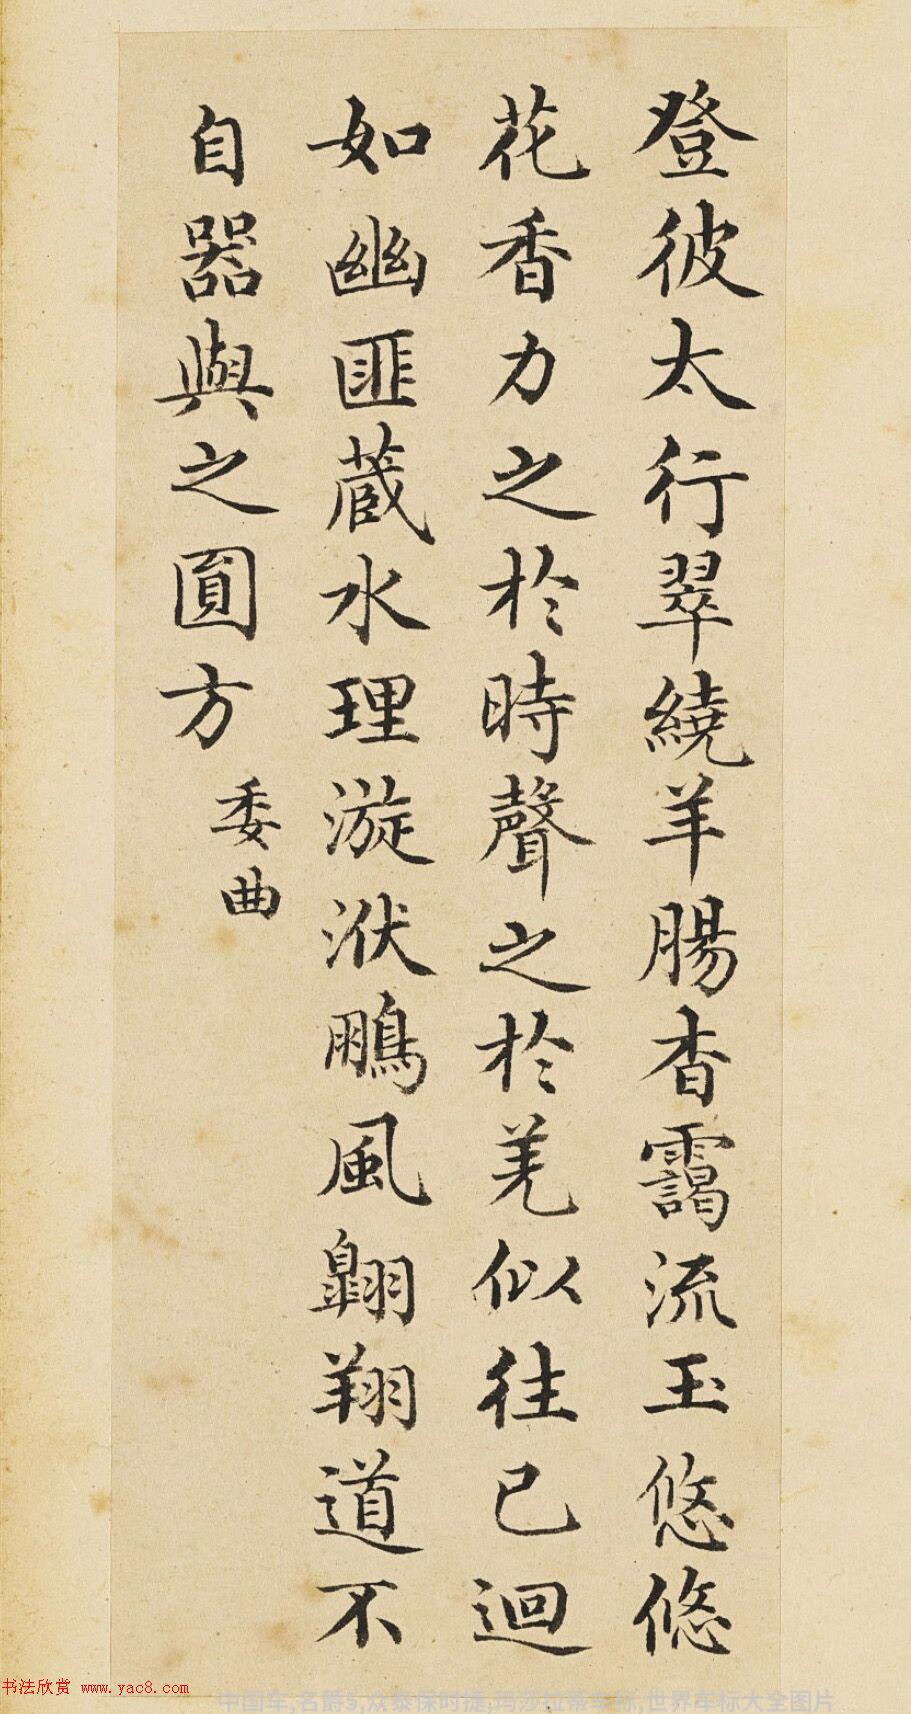 登彼太行翠繞羊腸杳靄流玉悠悠
花香力之於時聲之於羌似往已迴
如幽匪蔵水理漩洑鵬風翺翔道不
自器與之圓方
委曲
书法欣赏 www.yac8.com
中国车,名爵5,众泰保时捷,玛莎拉蒂车标,世界车标大全图片